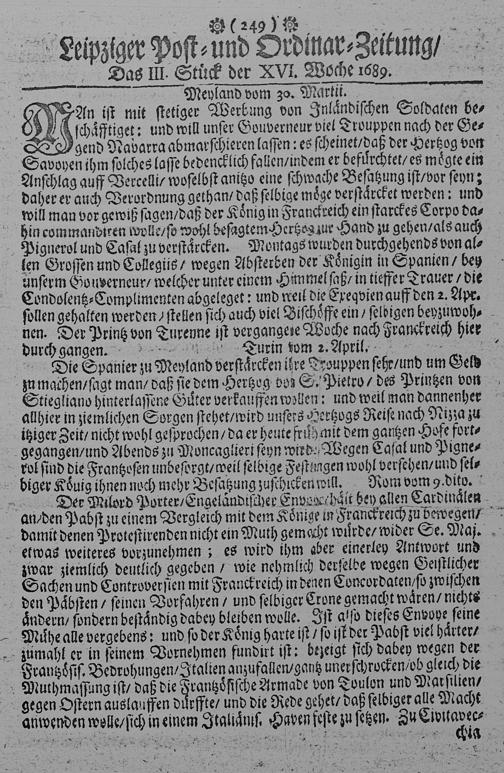 (249)
Leipziger Post- und Ordinar-Zeitung/
Das III. Stück der XVI. Woche 1689.
Meyland vom 30. Martii.
MAn ist mit stetiger Werbung von Inländischen Soldaten be-
schäfftiget: und will unser Gouverneur viel Trouppen nach der Ge-
gend Navarra abmarschieren lassen: es scheinet/ daß der Hertzog von
Savoyen ihm solches lasse bedencklich fallen/ indem er befürchtet/ es mögte ein
Anschlag auff Vercelli/ woselbst anitzo eine schwache Besatzung ist/ vor seyn;
daher er auch Verordnung gethan/ daß selbige möge verstärcket werden: und
will man vor gewiß sagen/ daß der König in Franckreich ein starckes Corpo da-
hin commandiren wolle/ so wohl besagtem Hertzog zur Hand zu gehen/ als auch
Pignerol und Casal zu verstärcken. Montags wurden durchgehends von al-
len Grossen und Collegiis/ wegen Absterben der Königin in Spanien/ bey
unserm Gouverneur/ welcher unter einem Himmel saß/ in tieffer Trauer/ die
Condolentz-Complimenten abgeleget: und weil die Exeqvien auff den 2. Apr.
sollen gehalten werden/ stellen sich auch viel Bischöffe ein/ selbigen beyzuwoh-
nen. Der Printz von Turenne ist vergangene Woche nach Franckreich hier
durch gangen. Turin vom 2. April.
Die Spanier zu Meyland verstärcken ihre Trouppen sehr/ und um Geld
zu machen/ sagt man/ daß sie dem Hertzog von S. Pietro/ des Printzen von
Stiegliano hinterlassene Güter verkauffen wollen: und weil man dannenher
allhier in ziemlichen Sorgen stehet/ wird unsers Hertzogs Reise nach Nizza zu
itziger Zeit/ nicht wohl gesprochen/ da er heute früh mit dem gantzen Hofe fort-
gegangen/ und Abends zu Moncaglieri seyn wird. Wegen Casal und Pigne-
rol sind die Frantzosen unbesorgt/ weil selbige Festungen wohl versehen/ und sel-
biger König ihnen noch mehr Besatzung zuschicken will. Rom vom 9. dito.
Der Milord Porter/ Engeländischer Envoye/ hält bey allen Cardinälen
an/ den Pabst zu einem Vergleich mit dem Könige in Franckreich zu bewegen/
damit denen Protestirenden nicht ein Muth gemacht würde/ wider Se. Maj.
etwas weiteres vorzunehmen; es wird ihm aber einerley Antwort und
zwar ziemlich deutlich gegeben/ wie nehmlich derselbe wegen Geistlicher
Sachen und Controversien mit Franckreich in denen Concordaten/ so zwischen
den Päbsten/ seinen Vorfahren/ und selbiger Crone gemacht wären/ nichts
ändern/ sondern beständig dabey bleiben wolle. Ist also dieses Envoye seine
Mühe alle vergebens: und so der König harte ist/ so ist der Pabst viel härter/
zumahl er in seinem Vornehmen fundirt ist: bezeigt sich dabey wegen der
Frantzösis. Bedrohungen/ Italien anzufallen/ gantz unerschrocken/ ob gleich die
Muthmassung ist/ daß die Frantzösische Armade von Toulon und Marsilien/
gegen Ostern auslauffen dürffte/ und die Rede gehet/ daß selbiger alle Macht
anwenden wolle/ sich in einem Italiänis. Haven feste zu setzen. Zu Civitavec-
chia